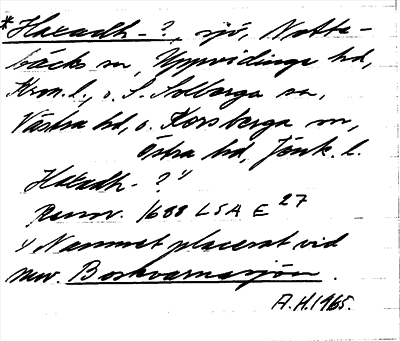 *Haradh-?, sjö, Notte-
bäcks sn, Uppvidinge hd,
Kron. l., o. S. Solberga sn,
Västra hd, o. Korsberga sn,
Östra hd, Jönk. l.
Haradh-? 1)
Renov. 1688 LSA E 27
1) Namnet placerat vid
nuv. Boskvarnasjön.
A.H. 1965.